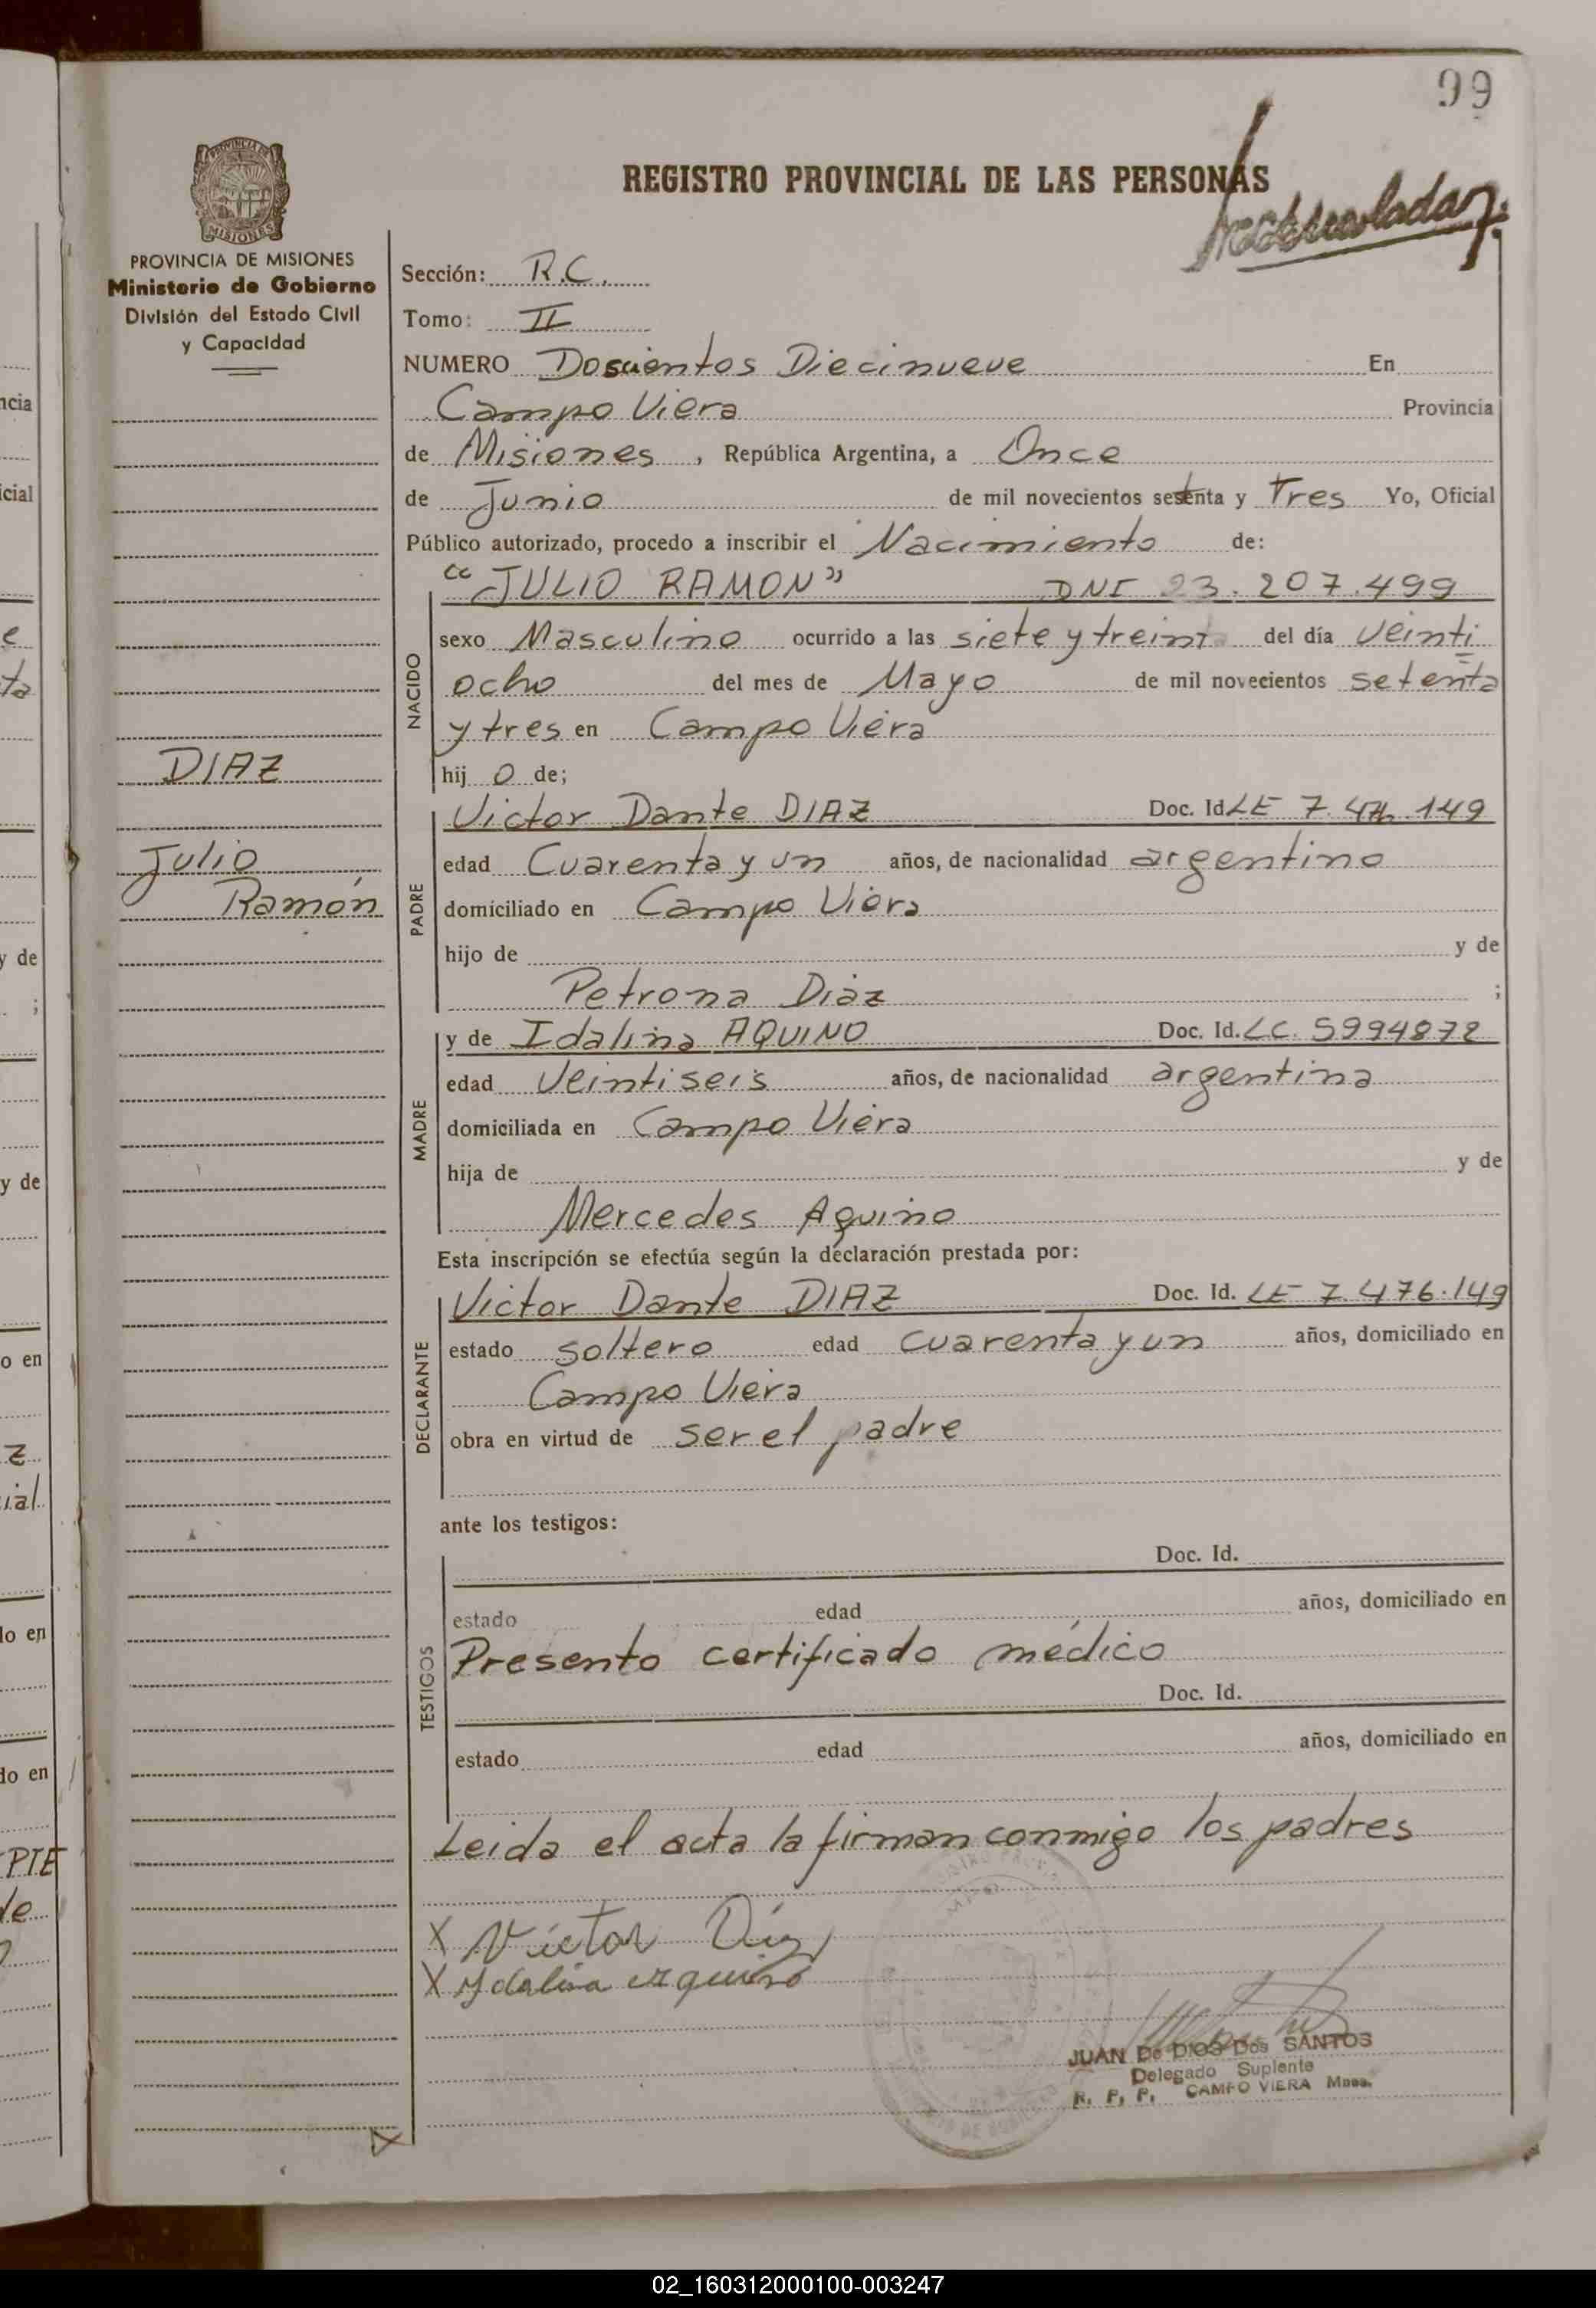 99
REGISTRO PROVINCIAL DE LAS PERSONAS
PROVINCIA DE MISIONES
Ministerio de Gobierno
División del Estado Civil
y Capacidad
Sección: R.C.
Tomo: II
NUMERO Doscientos Diecinueve En
Campo Viera Provincia
de Misiones, República Argentina, a Once
de Junio de mil novecientos setenta y Tres Yo, Oficial
Público autorizado, procedo a inscribir el Nacimiento de:
"JULIO RAMON" DNI 23.207.499
NACIDO
sexo Masculino ocurrido a las siete y treinta del día Veinti
ocho del mes de Mayo de mil novecientos setenta
y tres en Campo Viera
hij o de;
DIAZ
Julio
Ramón
PADRE
Victor Dante DIAZ Doc. Id. LE 7. 149
edad Cuarenta y un años, de nacionalidad argentino
domiciliado en Campo Viera
hijo de y de
Petrona Diaz ;
MADRE
y de Idalina AQUINO Doc. Id. LC. 5994872
edad Veintiseis años, de nacionalidad argentina
domiciliada en Campo Viera
hija de y de
Mercedes Aquino
Esta inscripción se efectúa según la declaración prestada por:
DECLARANTE
Victor Dante DIAZ Doc. Id. LE 7.476.149
estado soltero edad cuarenta y un años, domiciliado en
Campo Viera
obra en virtud de ser el padre
ante los testigos:
TESTIGOS
Doc. Id.
estado edad años, domiciliado en
Presento certificado médico
Doc. Id.
estado edad años, domiciliado en
Leida el acta la firman conmigo los padres
X Victor Díaz
X Ydalina Aquino
JUAN De DIOS Dos SANTOS
Delegado Suplente
R. P. P. CAMPO VIERA Mnes.
02_160312000100-003247